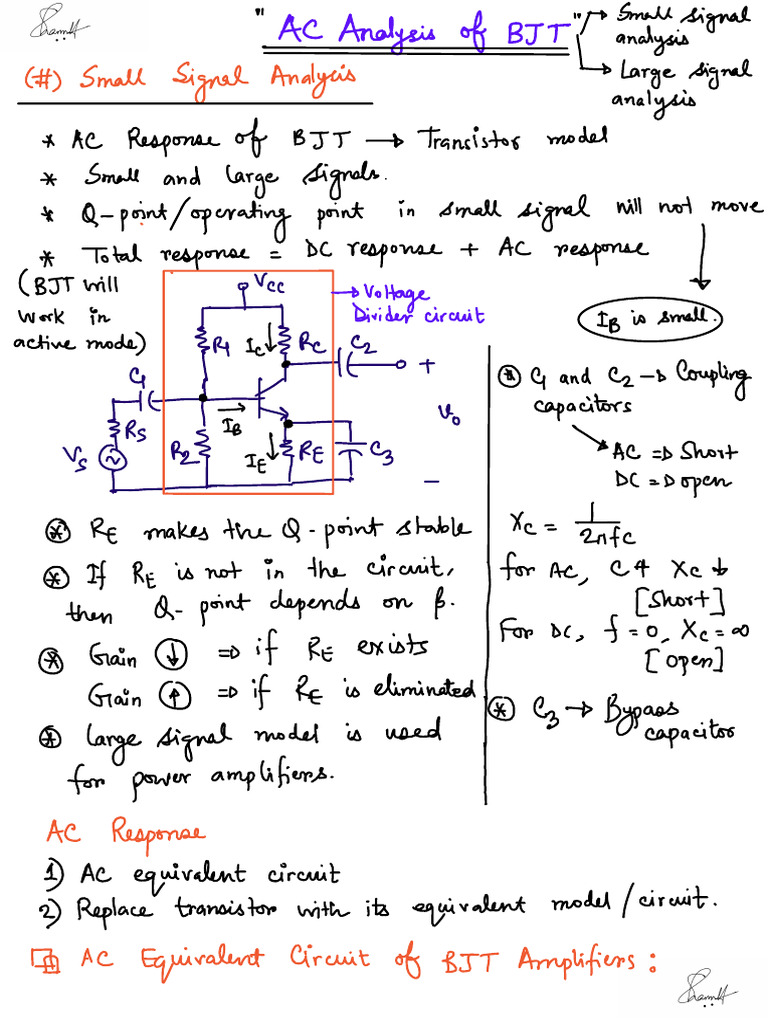 "AC Analysis of BJT" → Small signal analysis
→ Large signal analysis
(#) Small Signal Analysis
* AC Response of BJT → Transistor model
* Small and large signals.
* Q-point/operating point in small signal will not move
* Total response = DC response + AC response
(BJT will
work in
active mode)
VCC
→ Voltage
Divider circuit
IB is small.
R1
IC
RC
C2
+
C1
RS
VS
IB
R2
IE
RE
C3
Vo
−
* C1 and C2 → Coupling
capacitors
AC ⇒ Short
DC ⇒ open
XC = 1/2πfc
for AC, C↑ XC ↓
[Short]
For DC, f = 0, XC = ∞
[open]
* C3 → Bypass
capacitor
* RE makes the Q-point stable
* If RE is not in the circuit,
then Q-point depends on β.
* Gain ↓ ⇒ if RE exists
Gain ↑ ⇒ if RE is eliminated
* large signal model is used
for power amplifiers.
AC Response
1) AC equivalent circuit
2) Replace transistor with its equivalent model/circuit.
AC Equivalent Circuit of BJT Amplifiers: